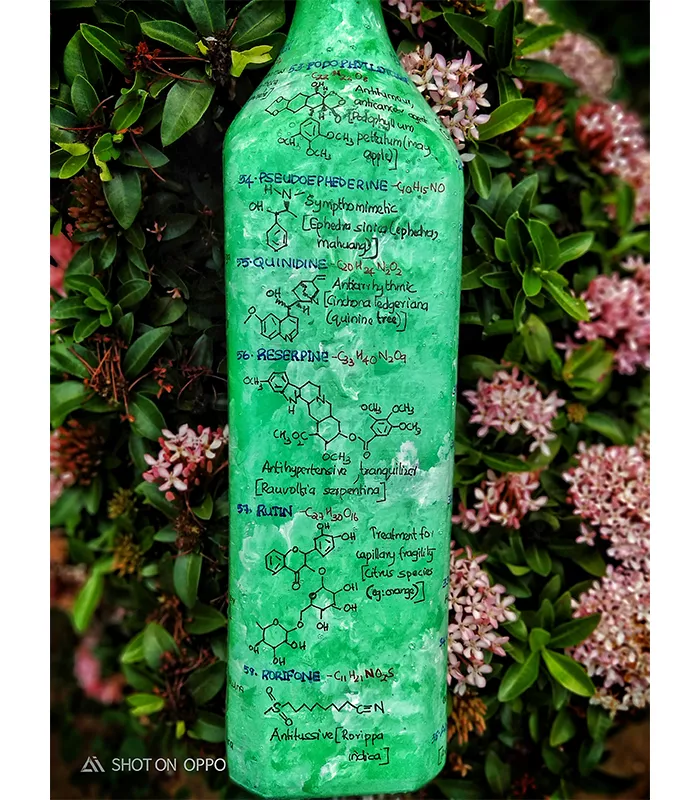 53. PODOPHYLLO
C22H22O8
Antitumour,
anticancer agent
[Podophyllum
peltatum (may
apple)]
OCH3
OCH3
OCH3
54. PSEUDOEPHEDERINE - C10H15NO
H
N
OH
Sympthomimetic
[Ephedra sinica (ephedra,
mahuang)]
55. QUINIDINE - C20H24N2O2
Antiarrhythmic
OH
N
H
[Cinchona ledgeriana
(quinine tree)]
O
N
56. RESERPINE - C33H40N2O9
OCH3
N
H
N
OCH3
OCH3
OCH3
CH3O2C
O
O
OCH3
Antihypertensive, tranquilizer
[Rauvolfia serpentina]
57. RUTIN - C27H30O16
OH
OH
Treatment for
capillary fragility
[Citrus species
(eg: orange)]
O
O
O
OH
O
OH
OH
O
O
OH
OH
OH
58. RORIFONE - C11H21NO2S
O
S
O
C≡N
Antitussive [Rorippa
indica]
SHOT ON OPPO